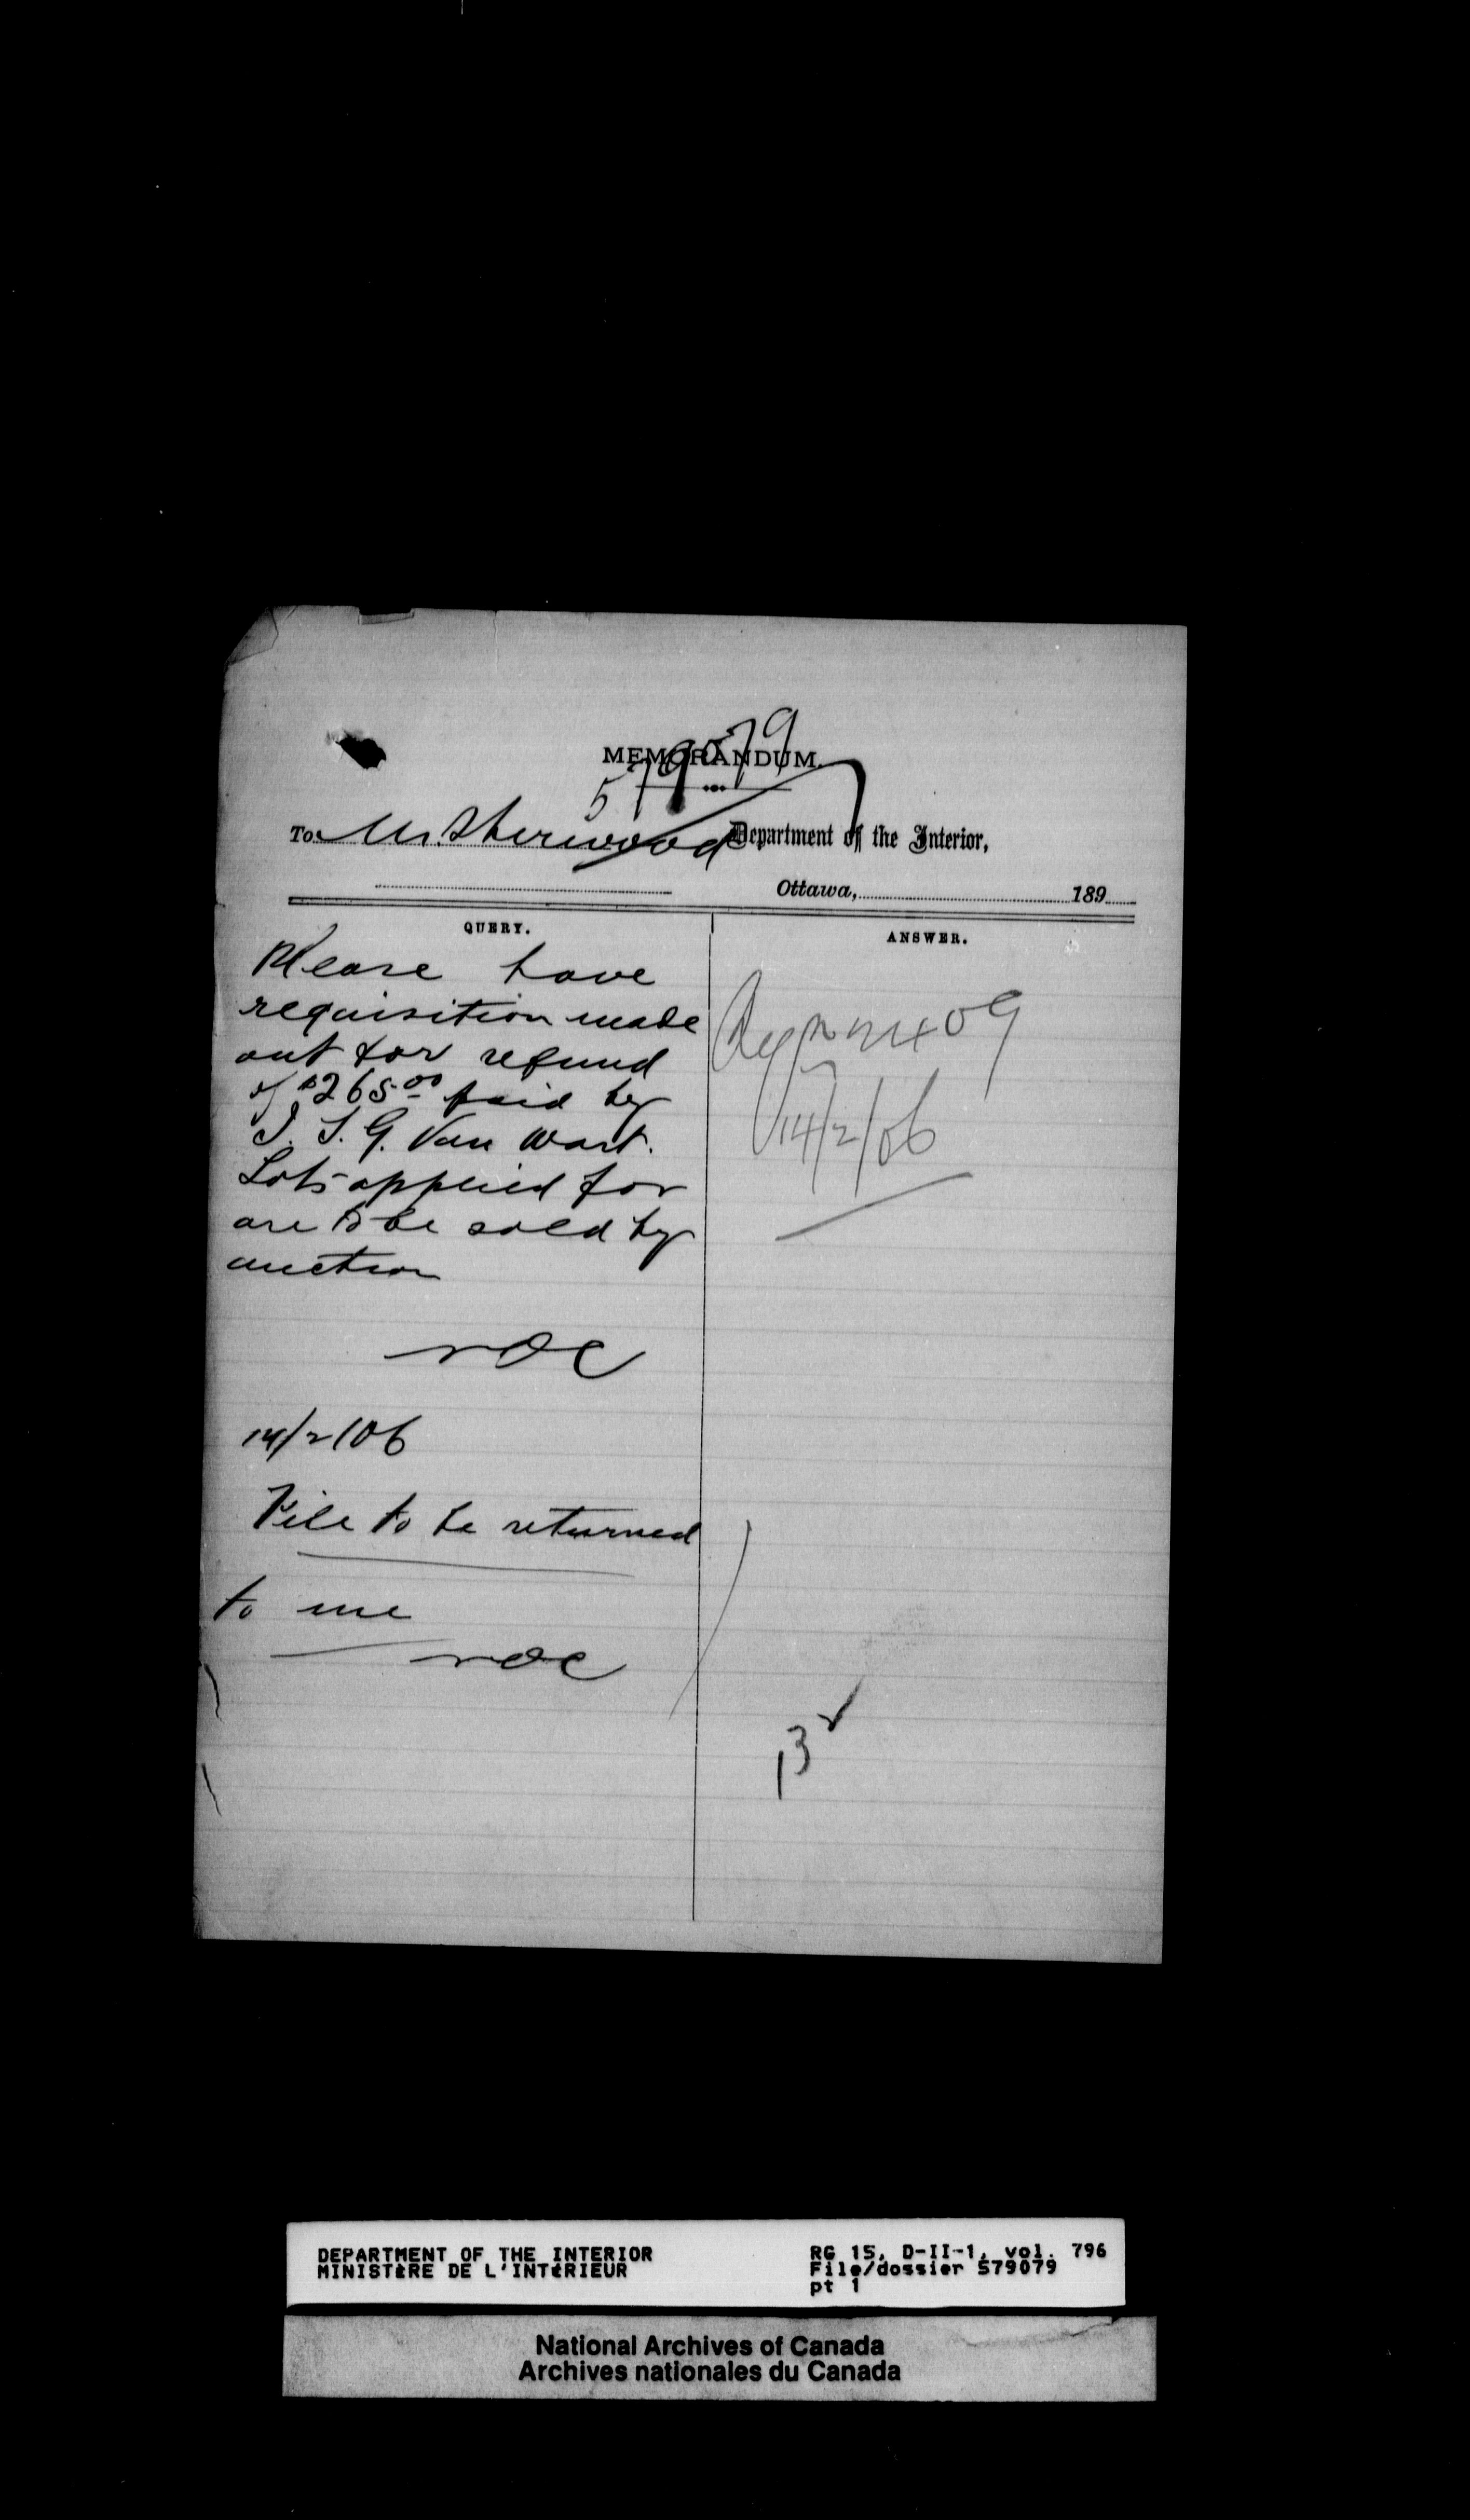 579079
MEMORANDUM.
To Mr. Sherwood Department of the Interior,
Ottawa, 189
QUERY.
ANSWER.
Please have
requisition made
out for refund
of $265.00 paid by
I. S. G. Van Wart.
Lots applied for
are to be sold by
auction
14/2/06
File to be returned
to me
14/2/06
13
DEPARTMENT OF THE INTERIOR
MINISTÈRE DE L'INTÉRIEUR
RG 15, D-II-1, vol. 796
File/dossier 579079
pt 1
National Archives of Canada
Archives nationales du Canada